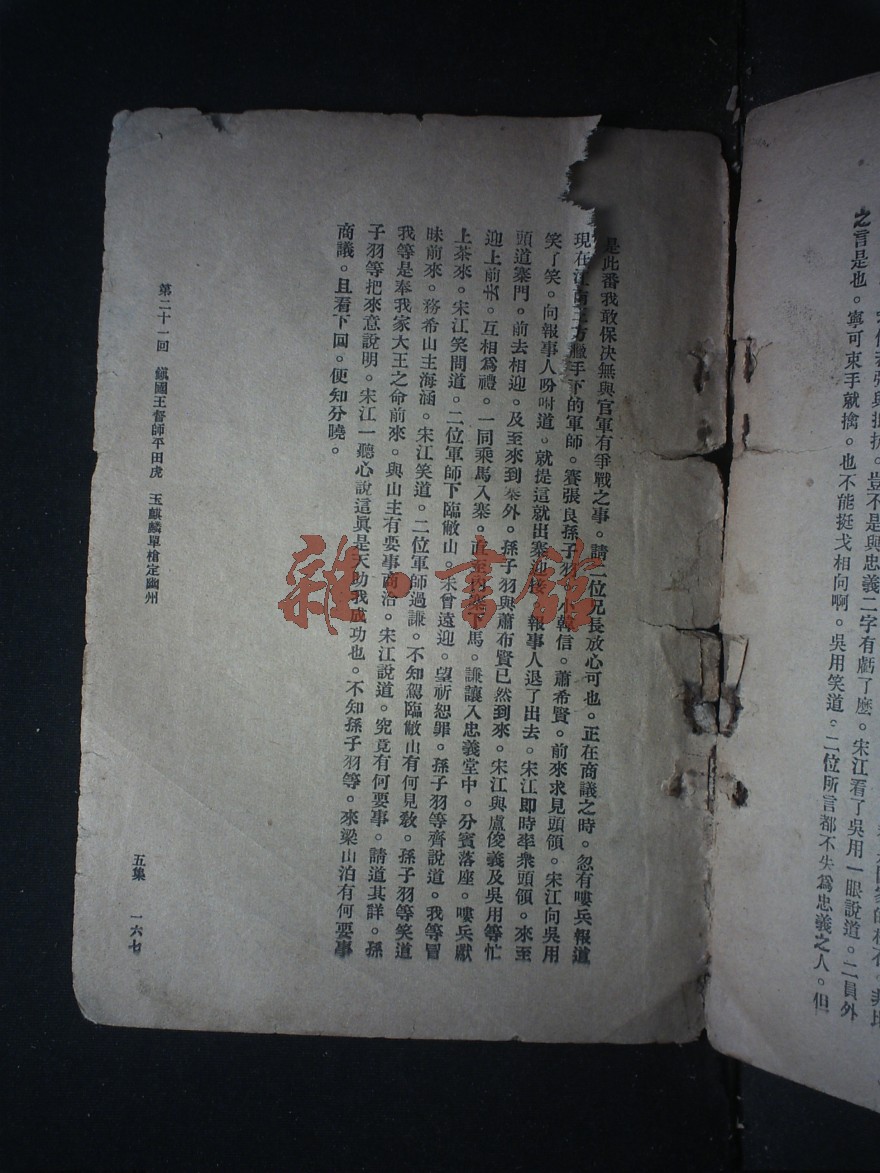 之言是也。寧可束手就擒。也不能挺戈相向啊。吳用笑道。二位所言都不失爲忠義之人。但
是此番我敢保決無與官軍有爭戰之事。請二位兄長放心可也。正在商議之時。忽有嘍兵報道
現在江南王方臘手下的軍師。賽張良孫子羽。小韓信。蕭希賢。前來求見頭領。宋江向吳用
笑了笑。向報事人吩咐道。就提這就出寨迎接。報事人退了出去。宋江即時率衆頭領。來至
頭道寨門。前去相迎。及至來到寨外。孫子羽與蕭布賢已然到來。宋江與盧俊義及吳用等忙
迎上前去。互相爲禮。一同乘馬入寨。直至內寨下馬。謙讓入忠義堂中。分賓落座。嘍兵獻
上茶來。宋江笑問道。二位軍師下臨敝山。未曾遠迎。望祈恕罪。孫子羽等齊說道。我等冒
昧前來。務希山主海涵。宋江笑道。二位軍師過謙。不知駕臨敝山有何見敎。孫子羽等笑道
我等是奉我家大王之命前來。與山主有要事商洽。宋江說道。究竟有何要事。請道其詳。孫
子羽等把來意說明。宋江一聽心說這眞是天助我成功也。不知孫子羽等。來梁山泊有何要事
商議。且看下回。便知分曉。
第二十一回　鎭國王督師平田虎　玉麒麟單槍定幽州
五集　一六七
雜·書館